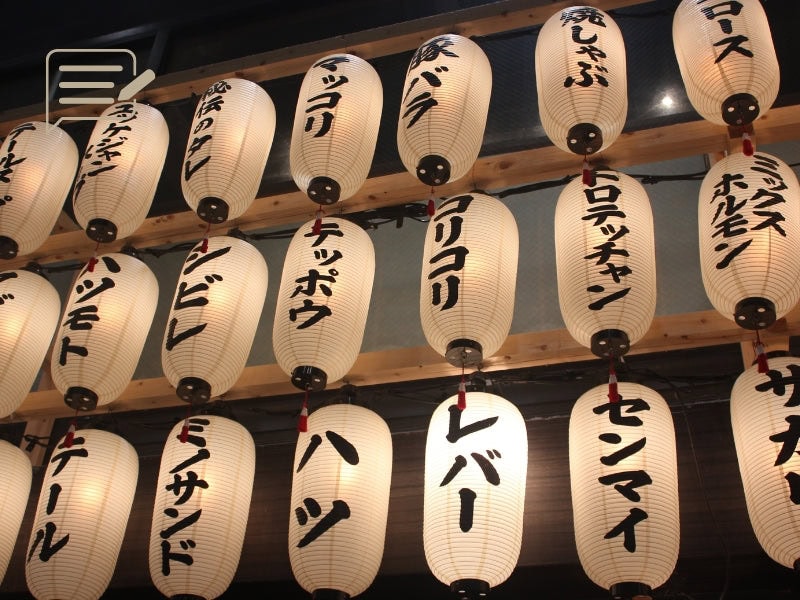 テールスープ
ユッケジャン
秘伝のタレ
マッコリ
豚バラ
焼しゃぶ
ロース
ハツモト
シビレ
テッポウ
コリコリ
トロテッチャン
ミックス
ホルモン
テール
ミノサンド
ハツ
レバー
センマイ